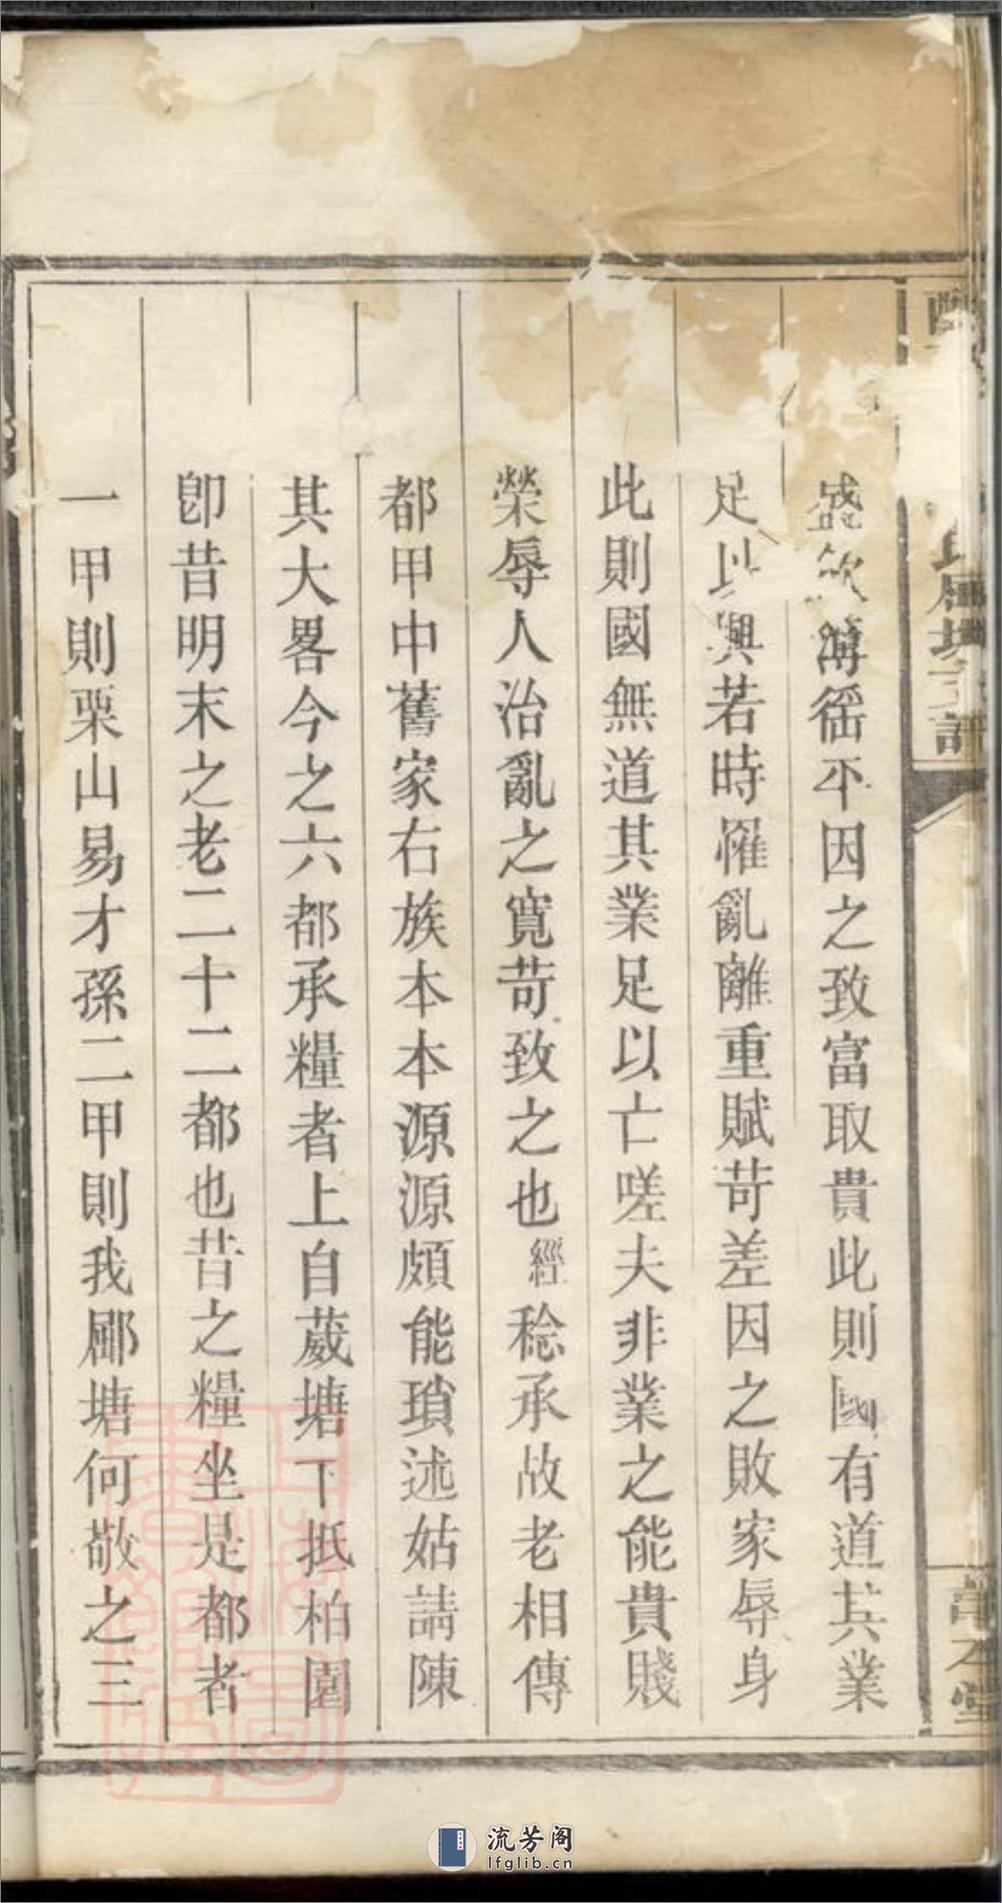 盛斂薄徭不因之致富取貴此則國有道其業
足以興若時罹亂離重賦苛差因之敗家辱身
此則國無道其業足以亡嗟夫非業之能貴賤
榮辱人治亂之寬苛致之也經稔承故老相傳
都甲中舊家右族本本源源頗能瑣述姑請陳
其大畧今之六都承糧者上自葳塘下抵柏園
卽昔明末之老二十二都也昔之糧坐是都者
一甲則栗山易才孫二甲則我鄏塘何敬之三
流芳阁
lfglib.cn